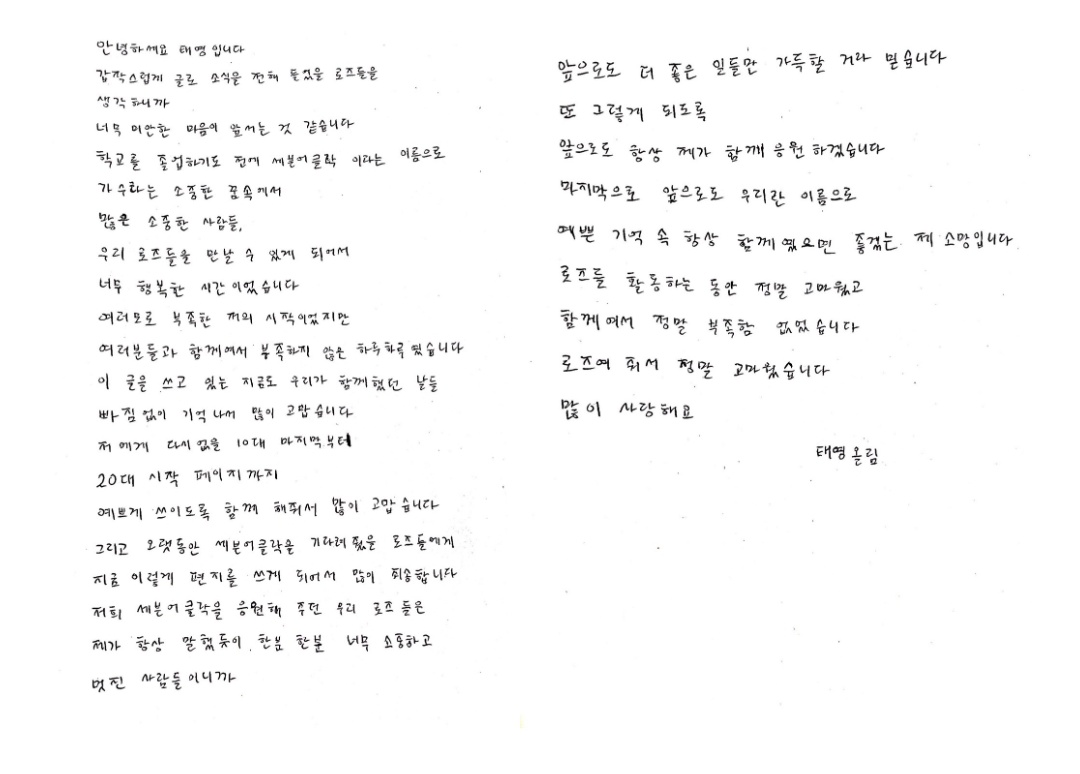 안녕하세요 태영입니다
갑작스럽게 글로 소식을 전해 들었을 로즈들을
생각하니까
너무 미안한 마음이 앞서는 것 같습니다
학교를 졸업하기도 전에 세븐어클락 이라는 이름으로
가수라는 소중한 꿈속에서
많은 소중한 사람들,
우리 로즈들을 만날 수 있게 되어서
너무 행복한 시간이었습니다
여러모로 부족한 저의 시작이었지만
여러분들과 함께여서 부족하지 않은 하루하루였습니다
이 글을 쓰고 있는 지금도 우리가 함께했던 날들
빠짐없이 기억나서 많이 고맙습니다
저에게 다시없을 10대 마지막부터
20대 시작 페이지까지
예쁘게 쓰이도록 함께 해줘서 많이 고맙습니다
그리고 오랫동안 세븐어클락을 기다려줬을 로즈들에게
지금 이렇게 편지를 쓰게 되어서 많이 죄송합니다
저희 세븐어클락을 응원해 주던 우리 로즈들은
제가 항상 말했듯이 한분 한분 너무 소중하고
멋진 사람들이니까
앞으로도 더 좋은 일들만 가득할 거라 믿습니다
또 그렇게 되도록
앞으로도 항상 제가 함께 응원하겠습니다
마지막으로 앞으로도 우리란 이름으로
예쁜 기억 속 항상 함께였으면 좋겠는 제 소망입니다
로즈들 활동하는 동안 정말 고마웠고
함께여서 정말 부족함 없었습니다
로즈여 줘서 정말 고마웠습니다
많이 사랑해요
태영 올림